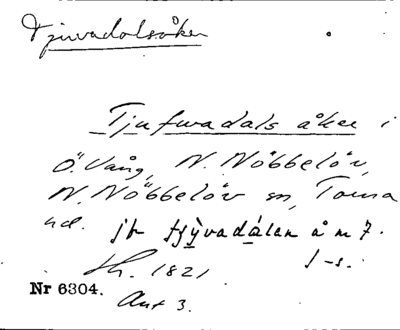 Tjuvadalsåker
Tjufwadals åker i
Ö. Vång, N. Nöbbelöv,
N. Nöbbelöv sn, Torna
hd. jfr tjÿvadálen å m 7.
Sk. 1821 J-s.
Nr 6304.
Akt 3.